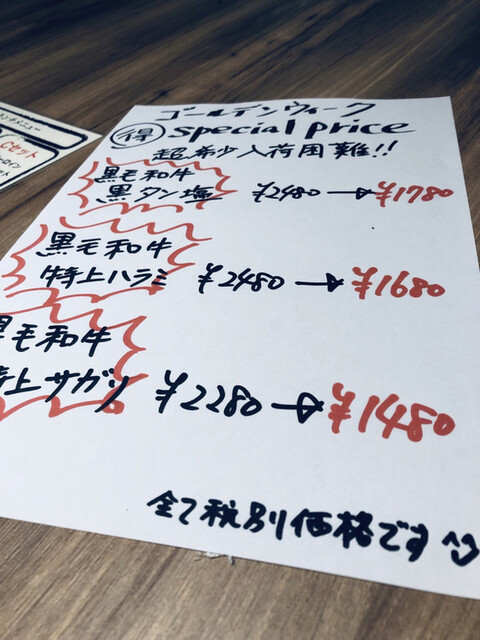 ゴールデンウィーク
得 special price
超希少入荷困難!!
黒毛和牛
黒タン塩 ¥2480→¥1780
黒毛和牛
特上ハラミ ¥2480→¥1680
黒毛和牛
特上サガリ ¥2280→¥1480
全て税別価格です^^
ランチメニュー
Cセット